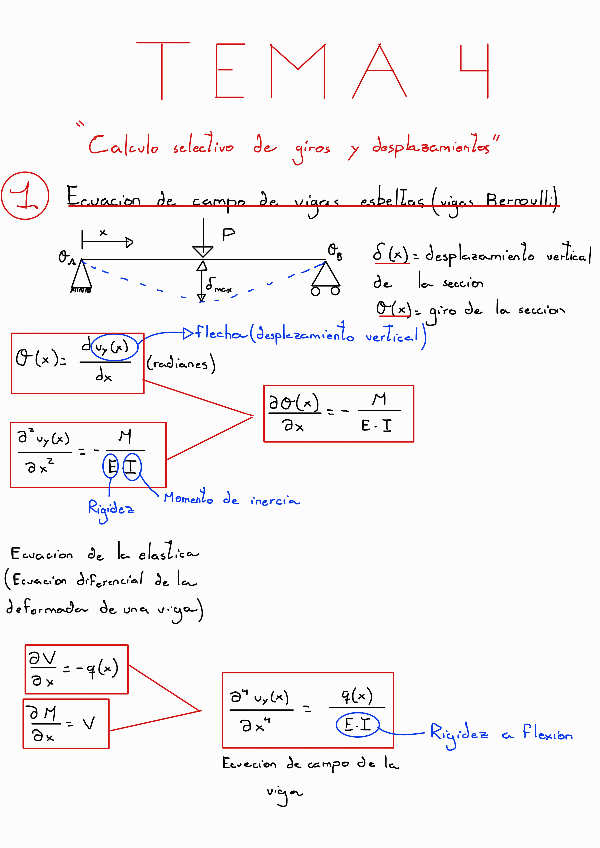 TEMA 4
"Calculo selectivo de giros y desplazamientos"
1 Ecuacion de campo de vigas esbeltas (vigas Bernoulli)
x
P
θA
θB
δmax
δ(x) = desplazamiento vertical
de la seccion
θ(x) = giro de la seccion
flecha (desplazamiento vertical)
θ(x) = d vy(x) / dx (radianes)
∂θ(x) / ∂x = - M / E·I
∂² vy(x) / ∂x² = - M / E·I
Rigidez
Momento de inercia
Ecuacion de la elastica
(Ecuacion diferencial de la
deformada de una viga)
∂V / ∂x = -q(x)
∂M / ∂x = V
∂⁴ vy(x) / ∂x⁴ = q(x) / E·I
Rigidez a flexion
Ecuacion de campo de la
viga